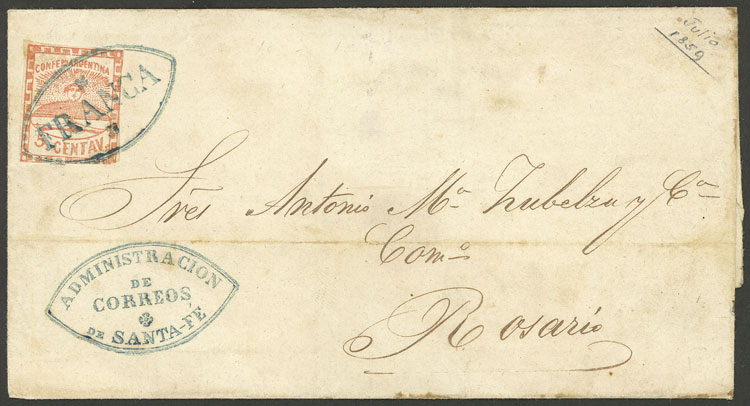 Julio
1859
CONFEON ARGENTINA
FRANCA
5 CENTAV.
Sres Antonio Ma. Zubelzu y Ca
Como
Rosario
ADMINISTRACION
DE
CORREOS
DE SANTA-FE